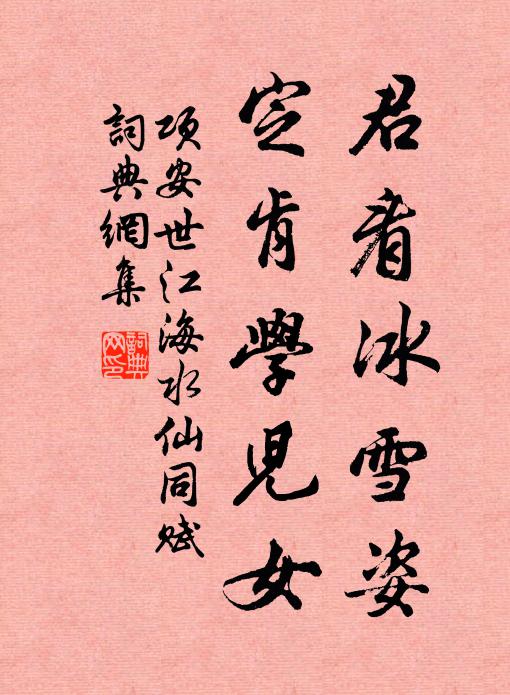 君看冰雪姿
定肯學兒女
項安世江海水仙同賦
詞典網集
詞典
网印